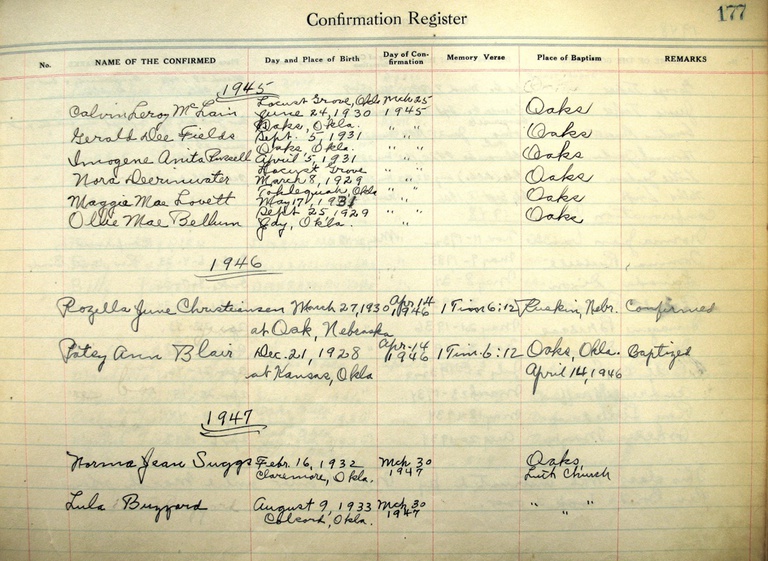 Confirmation Register
177
No. NAME OF THE CONFIRMED Day and Place of Birth Day of Con-firmation Memory Verse Place of Baptism REMARKS
1945
Locust Grove, Okla Mch 25
Calvin Leroy McLain June 24, 1930 1945 Oaks
Oaks, Okla. " "
Gerald Dee Fields Sept. 5, 1931 Oaks
Oaks, Okla. " "
Imogene Anita Russell April 5, 1931 Oaks
Locust Grove
Nora Deerinwater March 8, 1929 " " Oaks
Tahlequah, Okla " "
Maggie Mae Lovett May 17, 1931 Oaks
Sept 25 1929 " "
Ollie Mae Bellum Okla. " Oaks
1946
Rozella June Christiansen March 27, 1930 Apr. 14 1946 1 Tim 6:12 Ruskin, Nebr. Confirmed
at Oak, Nebraska
Patsy Ann Blair Dec. 21, 1928 Apr. 14 1946 1 Tim. 6:12 Oaks, Okla. Baptized
at Kansas, Okla April 14, 1946
1947
Norma Jean Suggs Febr. 16, 1932 Mch 30 1947 Oaks,
Claremore, Okla. Luth Church
Lula Buzzard August 9, 1933 Mch 30 1947 " "
Colcord, Okla. "